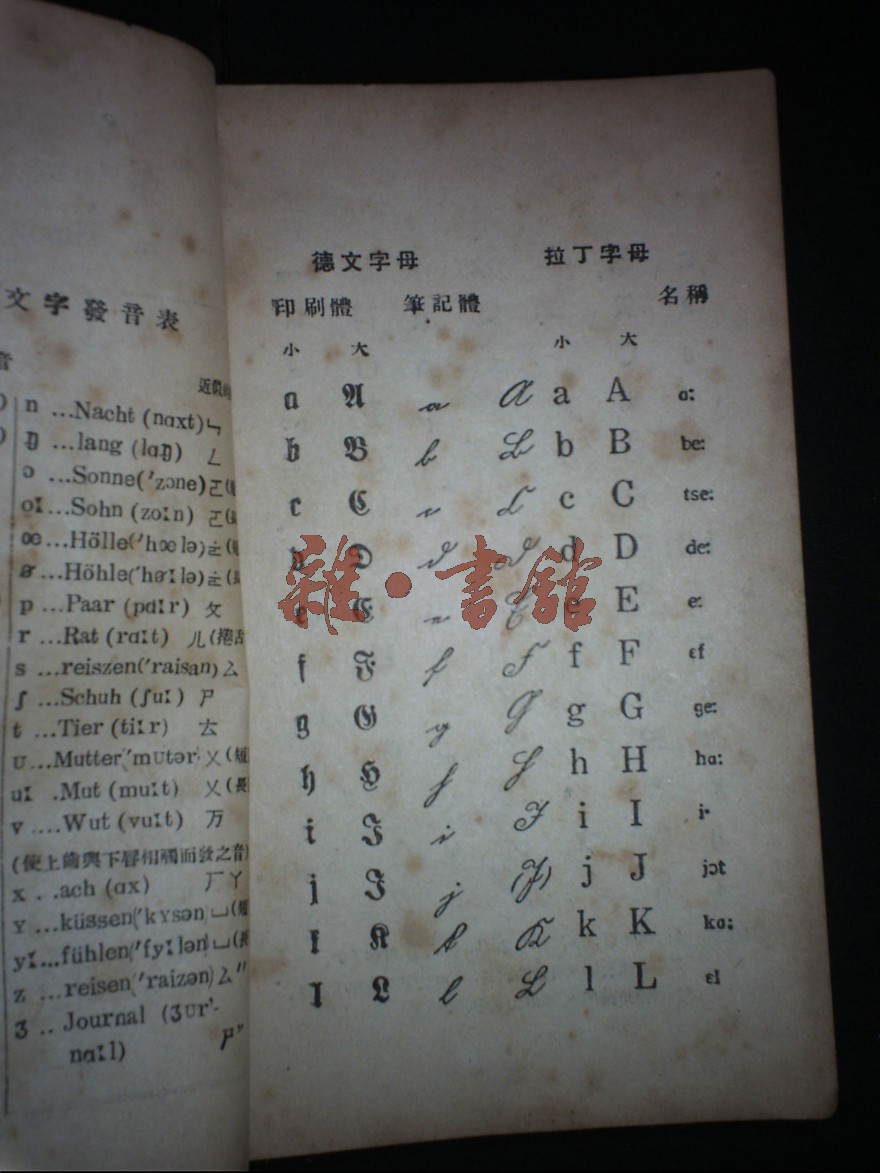 文字發音表
音
近似的
n ...Nacht (nɑxt) ㄣ
ŋ ...lang (lɑŋ) ㄥ
ɔ ...Sonne('zɔne) ㄛ
oː ...Sohn (zoːn) ㄛ
œ ...Hölle('hœlə)
ø ...Höhle('høːlə)
p ...Paar (pɑːr) ㄆ
r ...Rat (rɑːt) ㄦ(捲舌
s ...reiszen('raisən) ㄙ
ʃ ...Schuh (ʃuː) ㄕ
t ...Tier (tiːr) ㄊ
ʊ ...Mutter('mʊtər) ㄨ(短
uː .Mut (muːt) ㄨ(長
v ....Wut (vuːt) 万
(使上齒與下唇相觸而發之音)
x . .ach (ɑx) ㄏㄚ
ʏ ...küssen('kʏsən) ㄩ(短
yː ...fühlen('fyːlən) ㄩ(長
z ...reisen('raizən) ㄙ〃
ʒ .. Journal (ʒʊr'-
nɑːl) ㄕ〃
德文字母 拉丁字母
印刷體 筆記體 名稱
小 大 小 大
a A a A a A ɑː
b B b B b B beː
c C c C c C tseː
d D d D d D deː
e E e E e E eː
f F f F f F ɛf
g G g G g G geː
h H h H h H hɑː
i I i I i I i·
j J j (J) j J jɔt
k K k K k K kɑː
l L l L l L ɛl
雜·書館